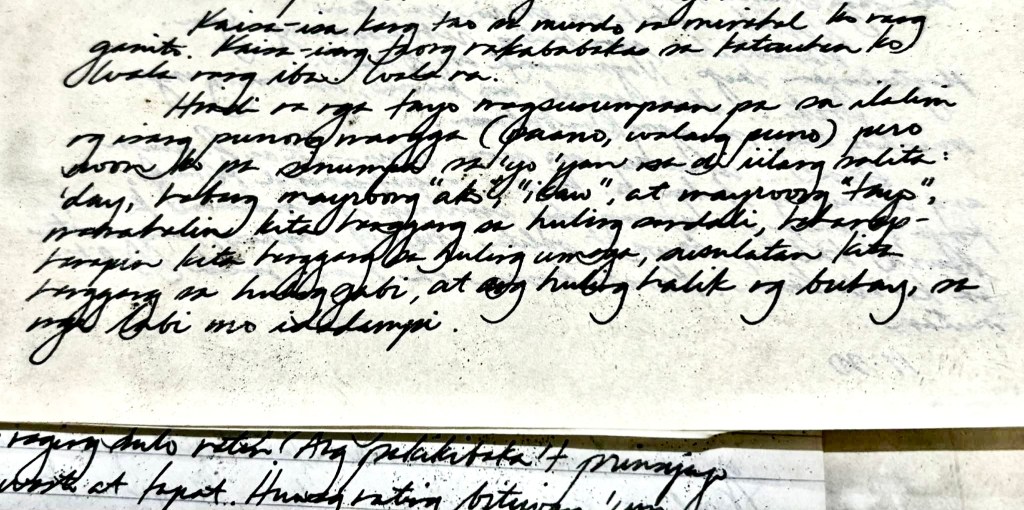 Kaisa-isa kang tao sa mundo na minahal ko nang
ganito. Kaisa-isang taong nakababakas sa katauhan ko
Wala nang iba. Wala na.
Hindi na nga tayo magsusumpaan pa sa ilalim
ng isang punong mangga (paano, walang puno) pero
ko pa sa 'yo 'yan sa di iilang salita:
'day, habang mayroong "ako", "ikaw", at mayroong "tayo",
mamahalin kita hanggang sa huling sandali,
kita hanggang sa huling umaga, susulatan kita
hanggang sa huling gabi, at ang huling halik ng buhay, sa
mga labi mo idadampi.
naging dulo natin! Ang pakikibaka't prinsipyo
at tapat. Huwag nating bitiwan 'yun